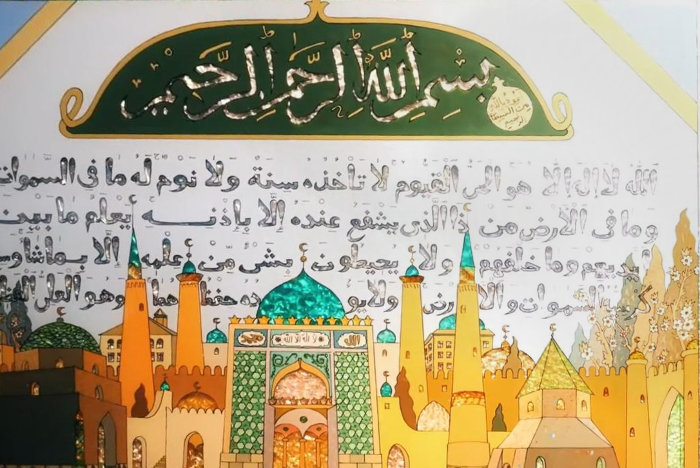 بسم الله الرحمن الرحيم
الله لا اله الا هو الحي القيوم لا تأخذه سنة ولا نوم له ما في السموات
وما في الارض من ذا الذي يشفع عنده إلا بإذنه يعلم ما بين
وما خلفهم ولا يحيطون بشئ من علمه الا بما شاء وسع
السموات والارض ولا يؤده حفظهما وهو العلي
الله